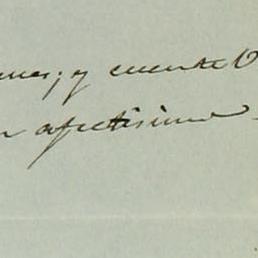 ; y cuente V
afectisimo